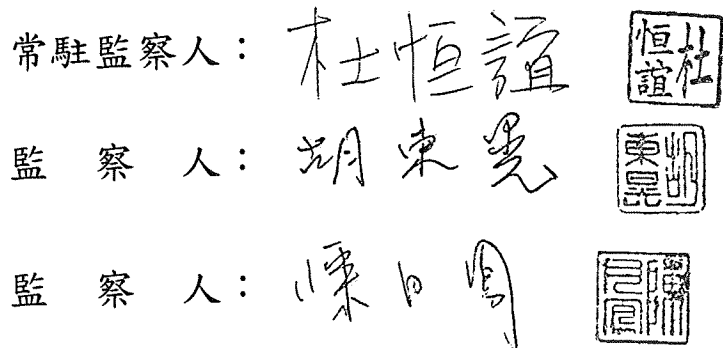 常駐監察人：杜恒誼 杜恒誼
監察人：胡東晃 胡東晃
監察人：